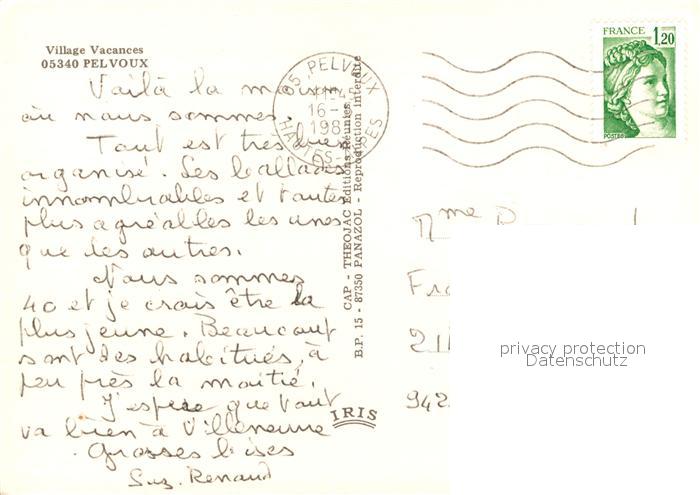 Village Vacances
05340 PELVOUX
Voilà la maison
où nous sommes.
Tout est très bien
organisé. Les ballades
innombrables et toutes
plus agréables les unes
que les autres.
Nous sommes
40 et je crois être la
plus jeune. Beaucoup
sont des habitués, à
peu près la moitié.
J'espère que tout
va bien à Villeneuve
Grosses bises
Suz. Renaud
CAP - THEOJAC Editions Réunies
B.P. 15 - 87350 PANAZOL - Reproduction interdite
IRIS
05 PELVOUX
16-
198
HAUTES-ALPES
FRANCE
1,20
POSTES
Mme D
Fra
21
942
privacy protection
Datenschutz